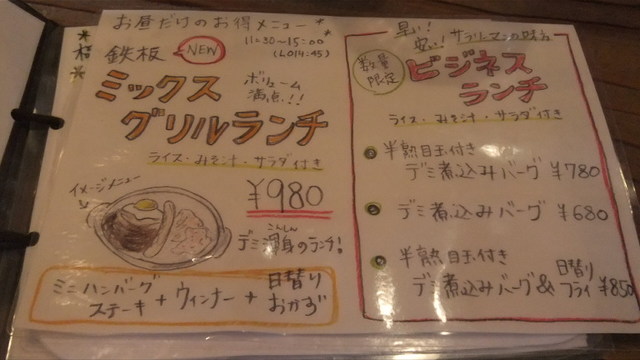 お昼だけのお得メニュー
11:30〜15:00
(LO14:45)
鉄板 NEW
ミックス
グリルランチ
ボリューム
満点!!
ライス・みそ汁・サラダ付き
¥980
イメージメニュー
こんしん
デミ渾身のランチ!
ミニハンバーグ
ステーキ + ウィンナー + 日替り
おかず
早い!
安い! サラリーマンの味方
数量
限定
ビジネス
ランチ
ライス・みそ汁・サラダ付き
半熟目玉付き
デミ煮込みバーグ ¥780
デミ煮込みバーグ ¥680
半熟目玉付き
デミ煮込みバーグ & 日替り
フライ ¥850